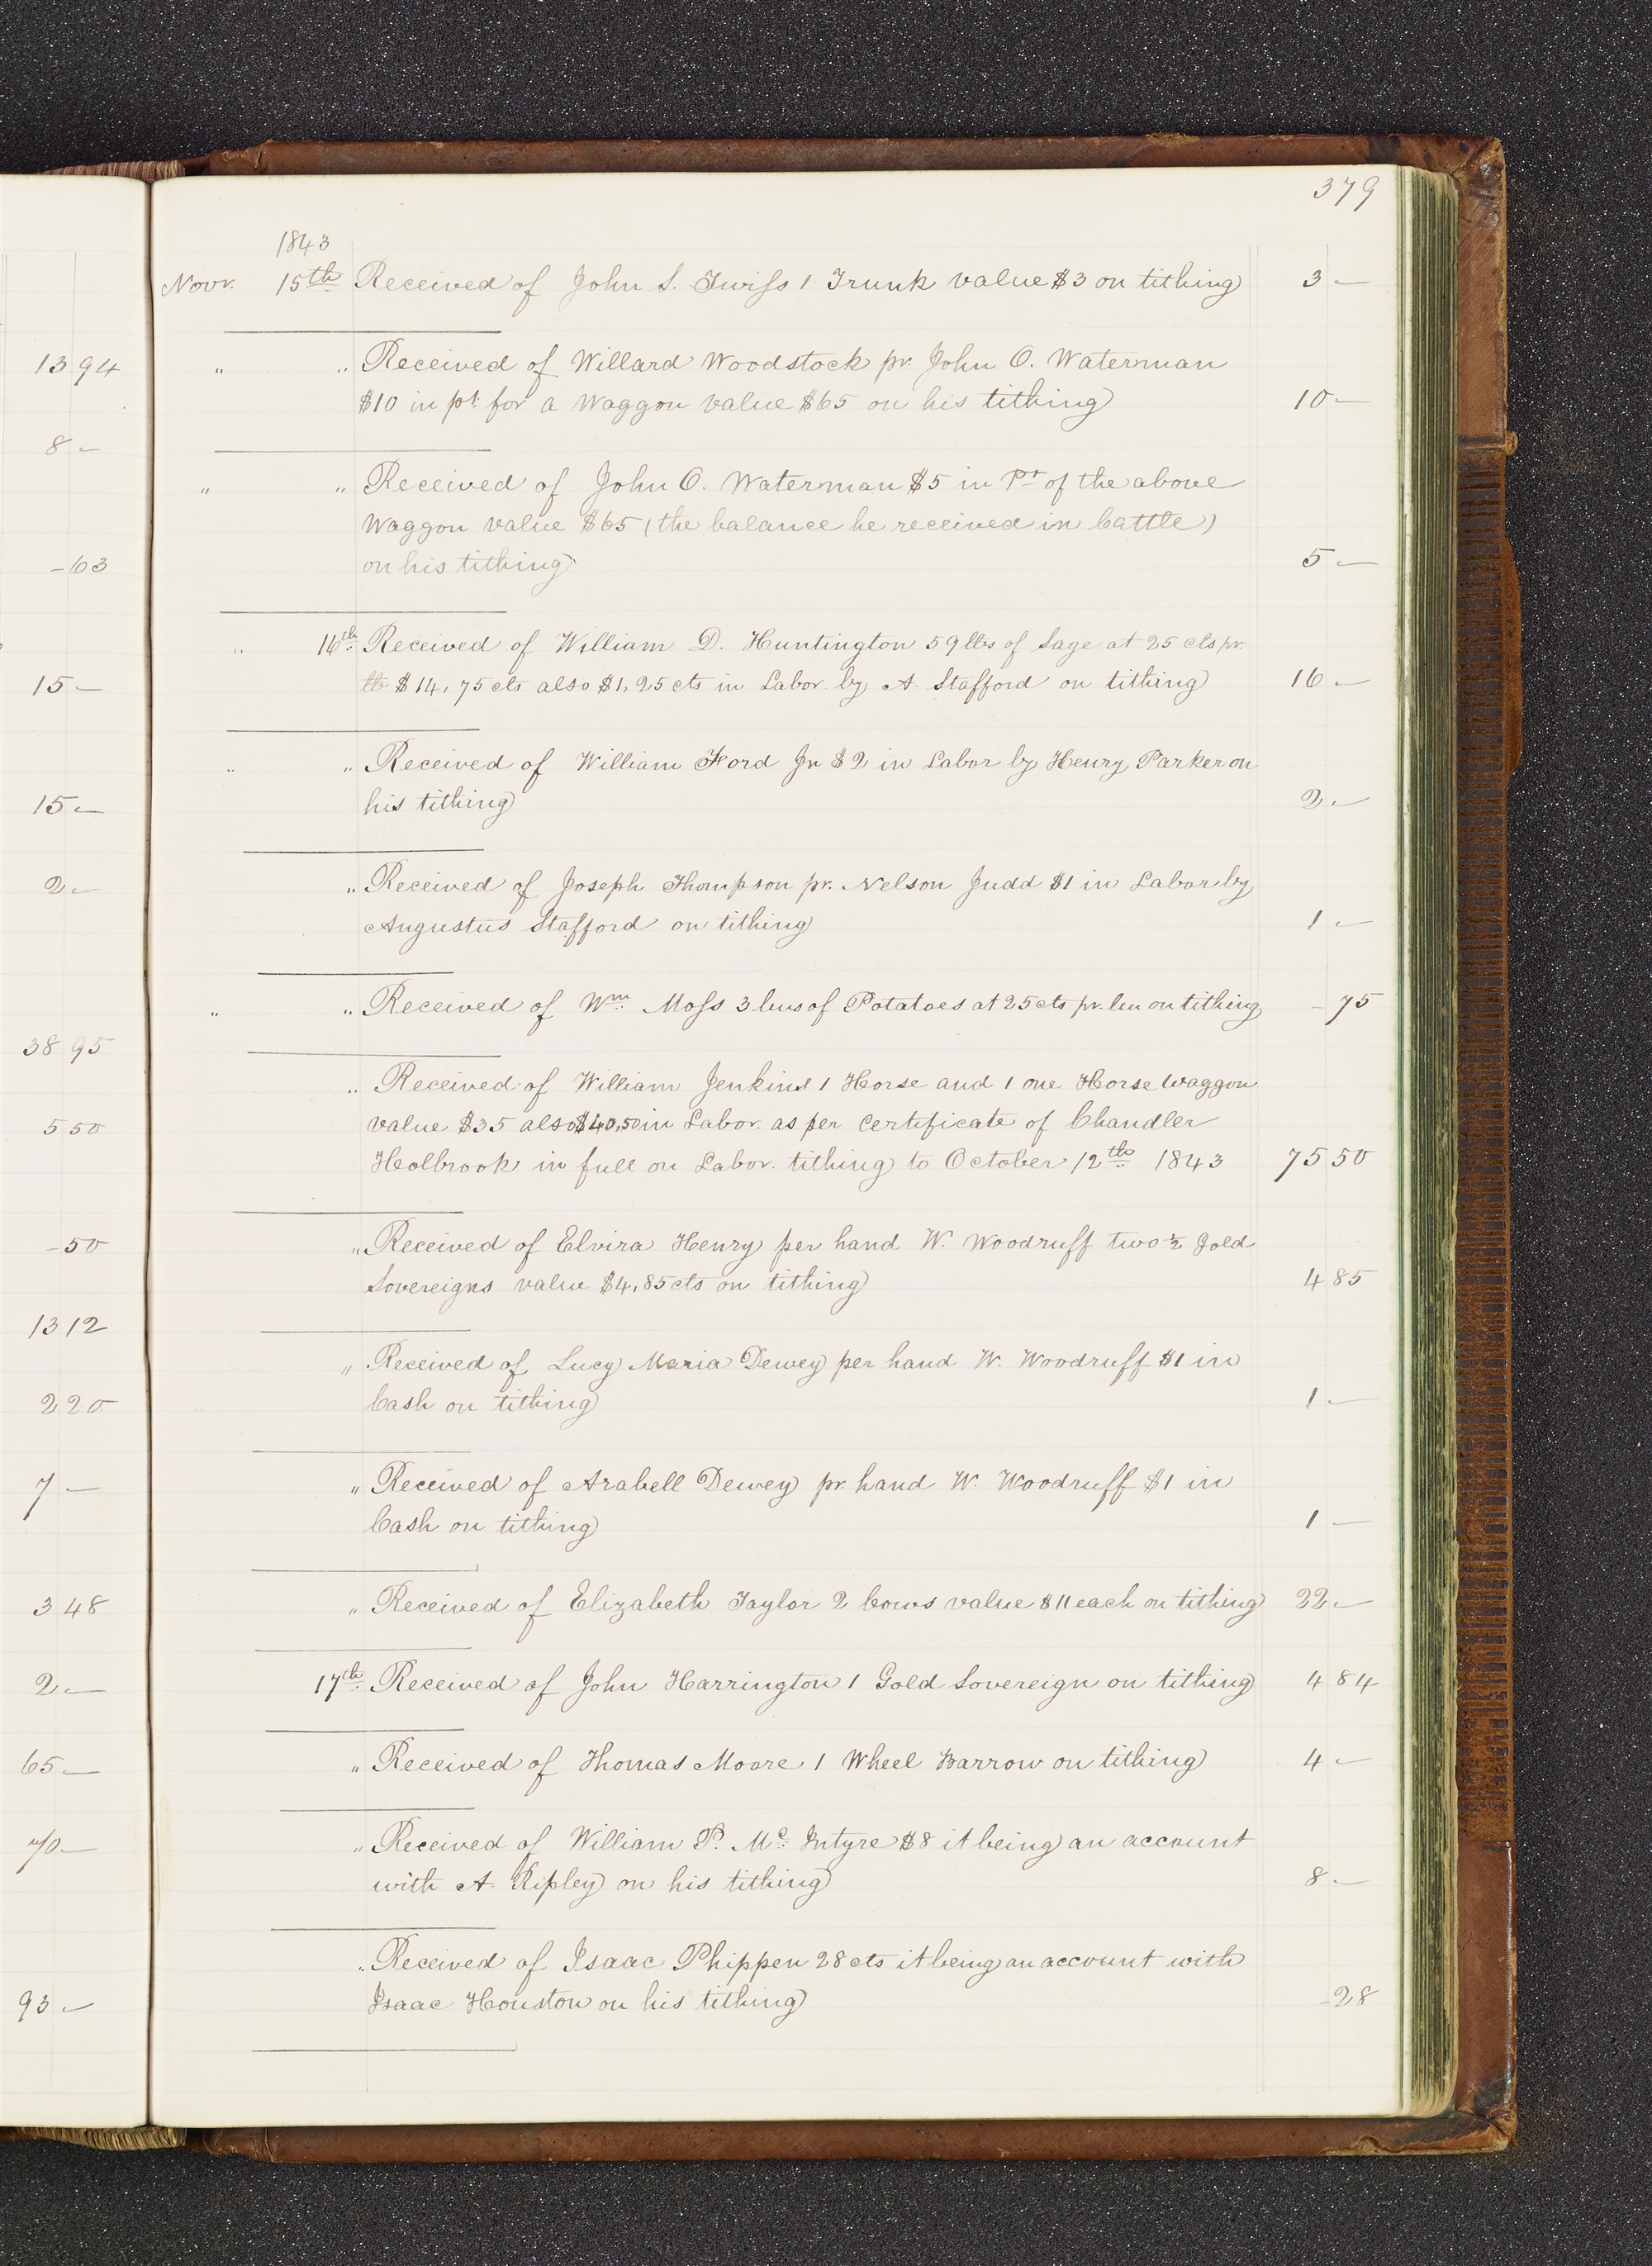 1394
8 –
– 63
15 –
15 –
2 –
38 95
5 50
– 50
13 12
2 20
7 –
3 48
2 –
65 –
70 –
93 –
379
1843
Novr. 15th Received of John S. Twiss 1 Trunk value $3 on tithing 3 –
" " Received of Willard Woodstock pr. John O. Waterman
$10 in pt. for a Waggon value $65 on his tithing 10 –
" " Received of John O. Waterman $5 in Pt. of the above
Waggon value $65 (the balance he received in Cattle)
on his tithing 5 –
" 16th Received of William D. Huntington 59 lbs of Sage at 25 cts pr.
lb $14,75 cts also $1,25 cts in Labor by A. Stafford on tithing 16 –
" " Received of William Ford Jr $2 in Labor by Henry Parker on
his tithing 2 –
" Received of Joseph Thompson pr. Nelson Judd $1 in Labor by
Augustus Stafford on tithing 1 –
" " Received of Wm. Moss 3 bus of Potatoes at 25 cts pr. bu on tithing – 75
" Received of William Jenkins 1 Horse and 1 one Horse Waggon
value $35 also $40,50 in Labor. as per Certificate of Chandler
Holbrook in full on Labor. tithing to October 12th 1843 75 50
" Received of Elvira Henry per hand W. Woodruff two ½ Gold
Sovereigns value $4,85 cts on tithing 4 85
" Received of Lucy Maria Dewey per hand W. Woodruff $1 in
Cash on tithing 1 –
" Received of Arabell Dewey pr. hand W. Woodruff $1 in
Cash on tithing 1 –
" Received of Elizabeth Taylor 2 Cows value $11 each on tithing 22 –
17th Received of John Harrington 1 Gold Sovereign on tithing 4 84
" Received of Thomas Moore 1 Wheel Barrow on tithing 4 –
" Received of William P. Mc. Intyre $8 it being an account
with A. Ripley on his tithing 8 –
" Received of Isaac Phippen 28 cts it being an account with
Isaac Houston on his tithing – 28